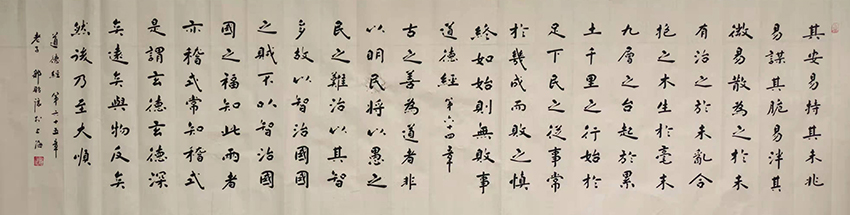 其安易持其未兆
易謀其脆易泮其
微易散為之於未
有治之於未亂合
抱之木生於毫末
九層之台起於累
土千里之行始於
足下民之從事常
於幾成而敗之慎
終如始則無敗事
道德經 第六十四章
古之善為道者非
以明民將以愚之
民之難治以其智
多故以智治國國
之賊不以智治國
國之福知此兩者
亦稽式常知稽式
是謂玄德玄德深
矣遠矣與物反矣
然後乃至大順
道德經 第六十五章
老子 於上海